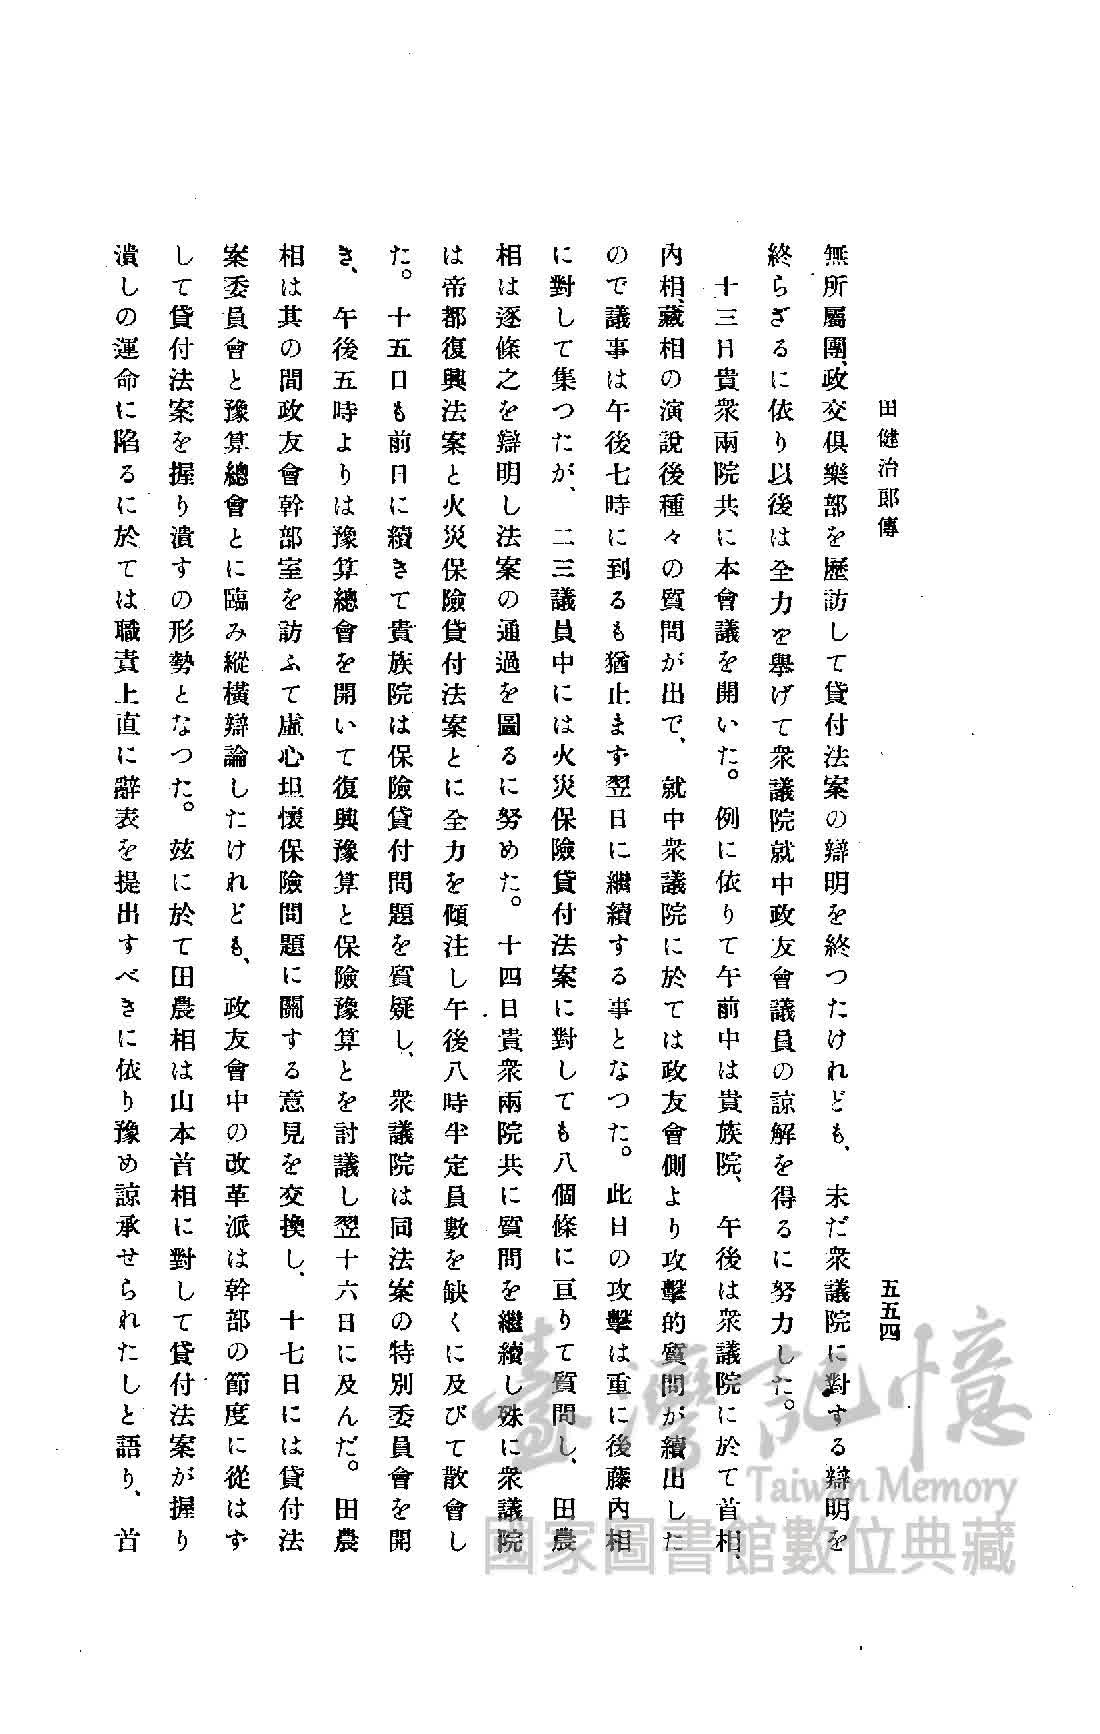 田健治郎傳
五五四
無所屬團、政交倶樂部を歷訪して貸付法案の辯明を終つたけれども、未だ衆議院に對する辯明を
終らざるに依り以後は全力を擧げて衆議院就中政友會議員の諒解を得るに努力した。
十三日貴衆兩院共に本會議を開いた。例に依りて午前中は貴族院、午後は衆議院に於て首相、
內相、藏相の演說後種々の質問が出で、就中衆議院に於ては政友會側より攻擊的質問が續出した
ので議事は午後七時に到るも猶止まず翌日に繼續する事となつた。此日の攻擊は重に後藤內相
に對して集つたが、二三議員中には火災保險貸付法案に對しても八個條に亘りて質問し、田農
相は逐條之を辯明し法案の通過を圖るに努めた。十四日貴衆兩院共に質問を繼續し殊に衆議院
は帝都復興法案と火災保險貸付法案とに全力を傾注し午後八時半定員數を缺くに及びて散會し
た。十五日も前日に續きて貴族院は保險貸付問題を質疑し、衆議院は同法案の特別委員會を開
き、午後五時よりは豫算總會を開いて復興豫算と保險豫算とを討議し翌十六日に及んだ。田農
相は其の間政友會幹部室を訪ふて虛心坦懷保險問題に關する意見を交換し、十七日には貸付法
案委員會と豫算總會とに臨み縱橫辯論したけれども、政友會中の改革派は幹部の節度に從はず
して貸付法案を握り潰すの形勢となつた。玆に於て田農相は山本首相に對して貸付法案が握り
潰しの運命に陷るに於ては職責上直に辭表を提出すべきに依り豫め諒承せられたしと語り、首
臺灣記憶
Taiwan Memory
國家圖書館數位典藏